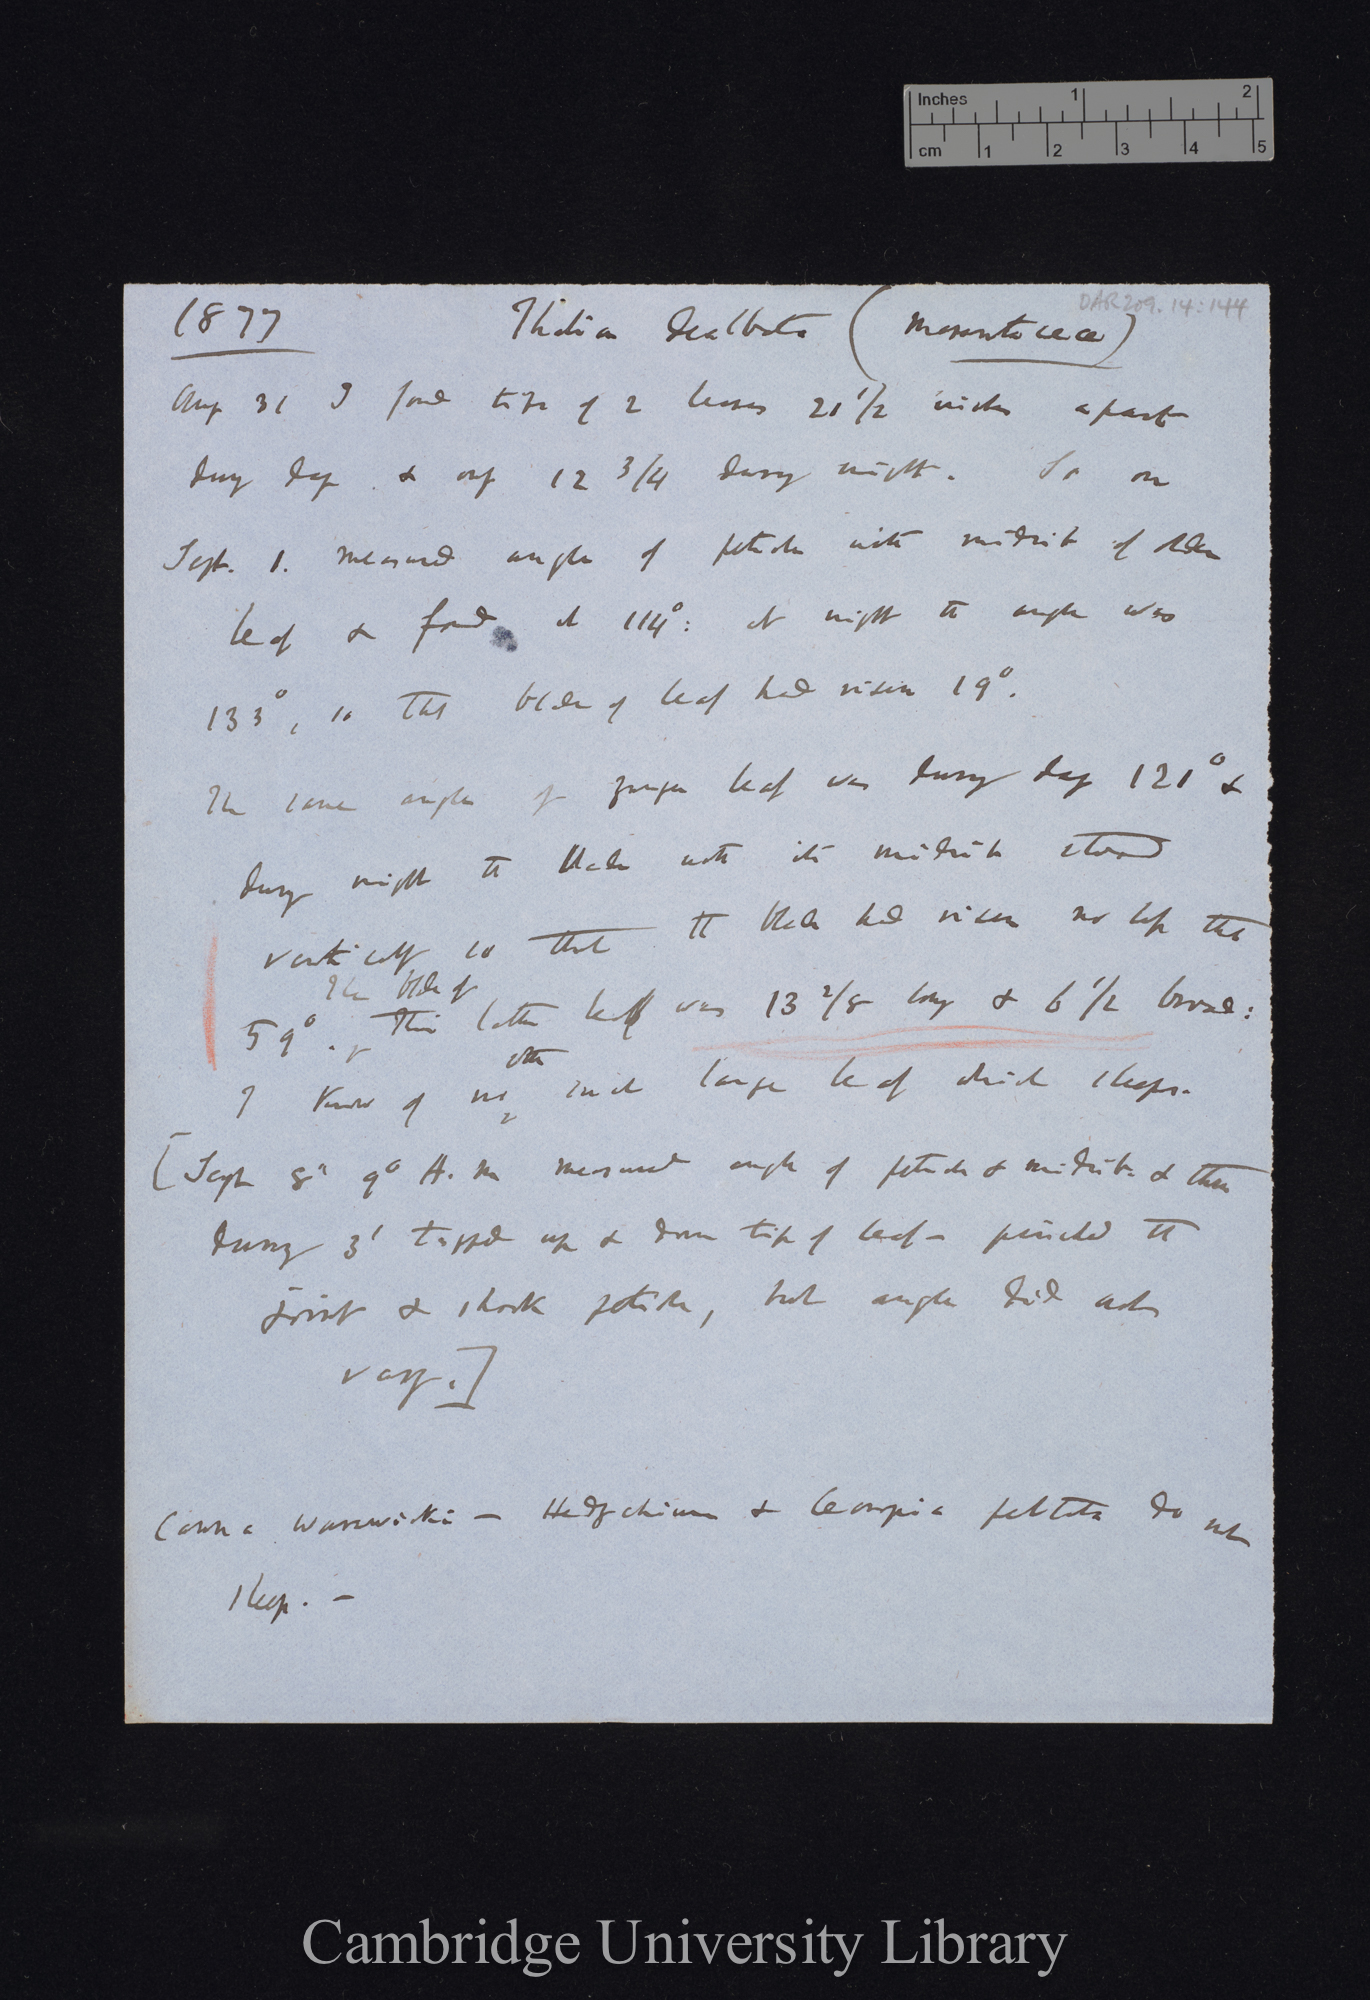 Inches 1 2
cm 1 2 3 4 5
DAR 209.14:144
1877 Thalia dealbata (Marantaceæ)
Aug 31 I found tips of 2 leaves 21 1/2 inches apart
during day & only 12 3/4 during night. So on
Sept. 1. measured angle of petiole with midrib of older
leaf & found it 114°: at night the angle was
133°, so that blade of leaf had risen 19°.
The same angle of younger leaf was during day 121° &
during night the blade with its midrib stood
vertically so that the blade had risen no less than
The blade of
59°. This latter leaf was 13 2/8 long & 6 1/2 broad:
other
I know of no such large leaf which sleeps.
[Sept 8th 9° A.m measured angle of petiole & midrib & then
during 3' tapped up & down tip of leaf – pinched the
joint & shook petiole, but angle did not
vary.]
Canna Warscewiczii – Hedychium & peltata do not
sleep. –
Cambridge University Library